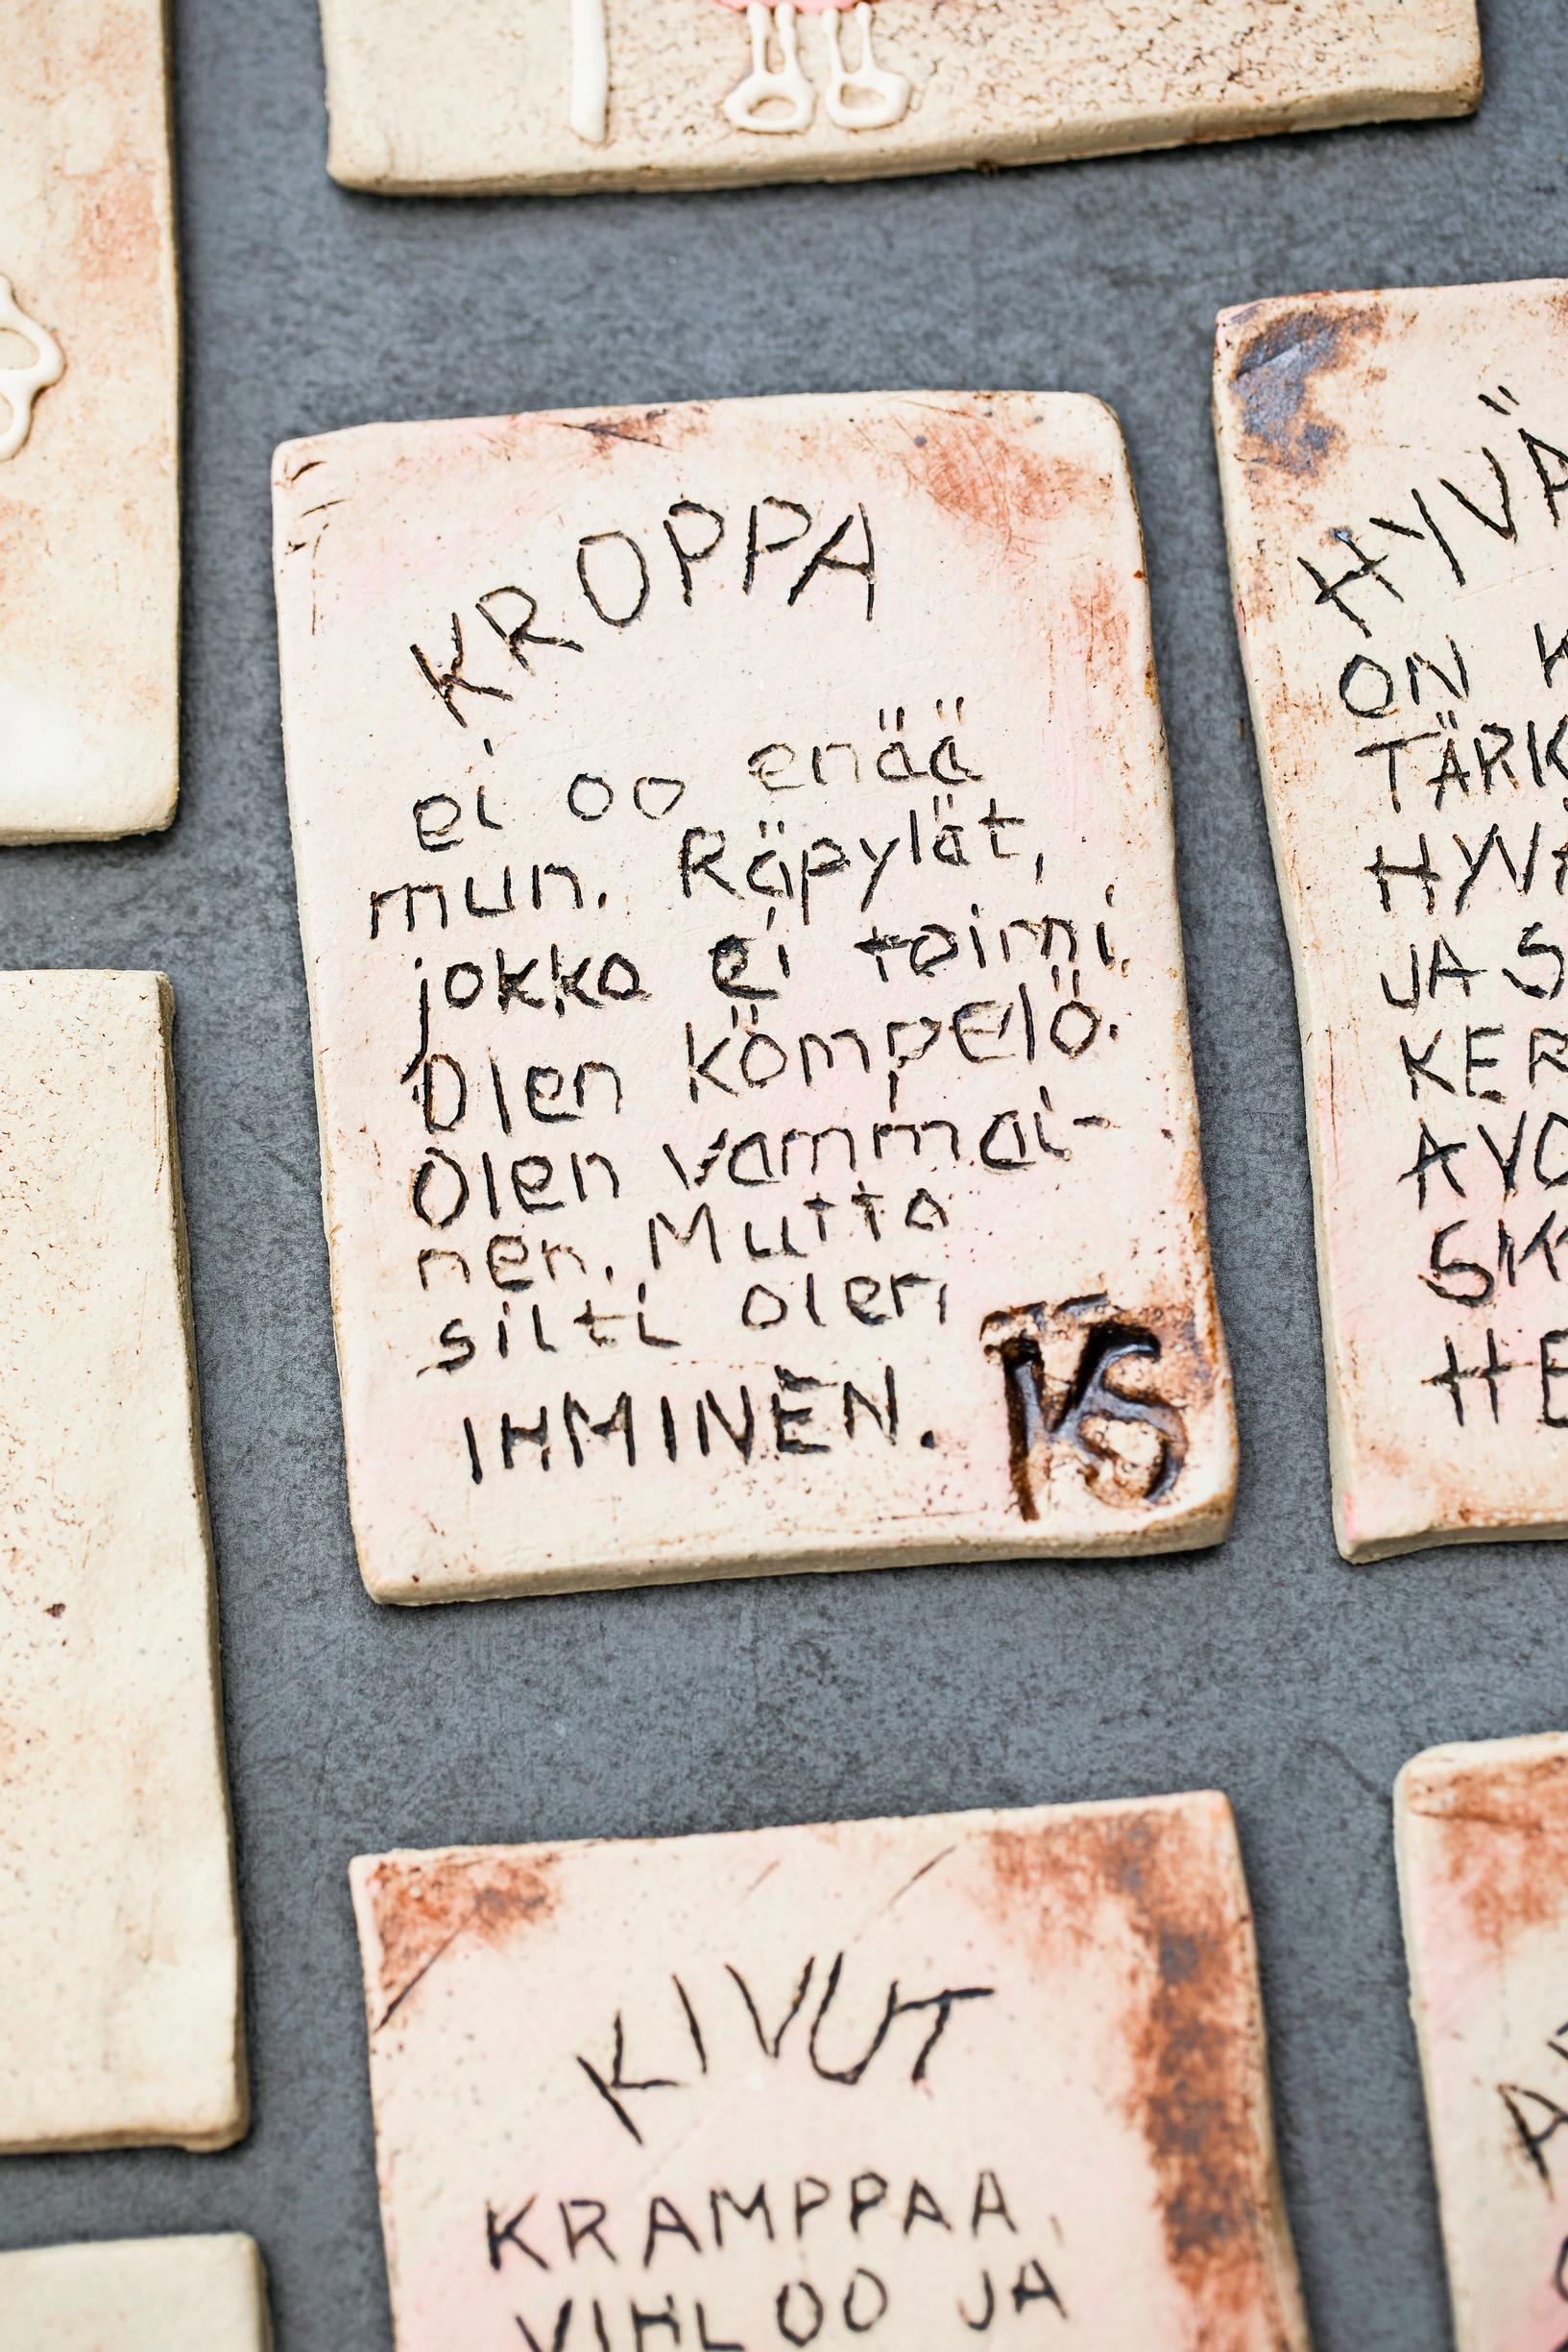 KROPPA
ei oo enää
mun. Räpylät,
jokka ei toimi.
Olen kömpelö.
Olen vammai-
nen. Mutta
silti olen
IHMINEN.
KS
HYVÄ
ON
TÄRK
HYVÄ
JA S
KER
AVO
HE
KIVUT
KRAMPPAA,
VIHLOO JA